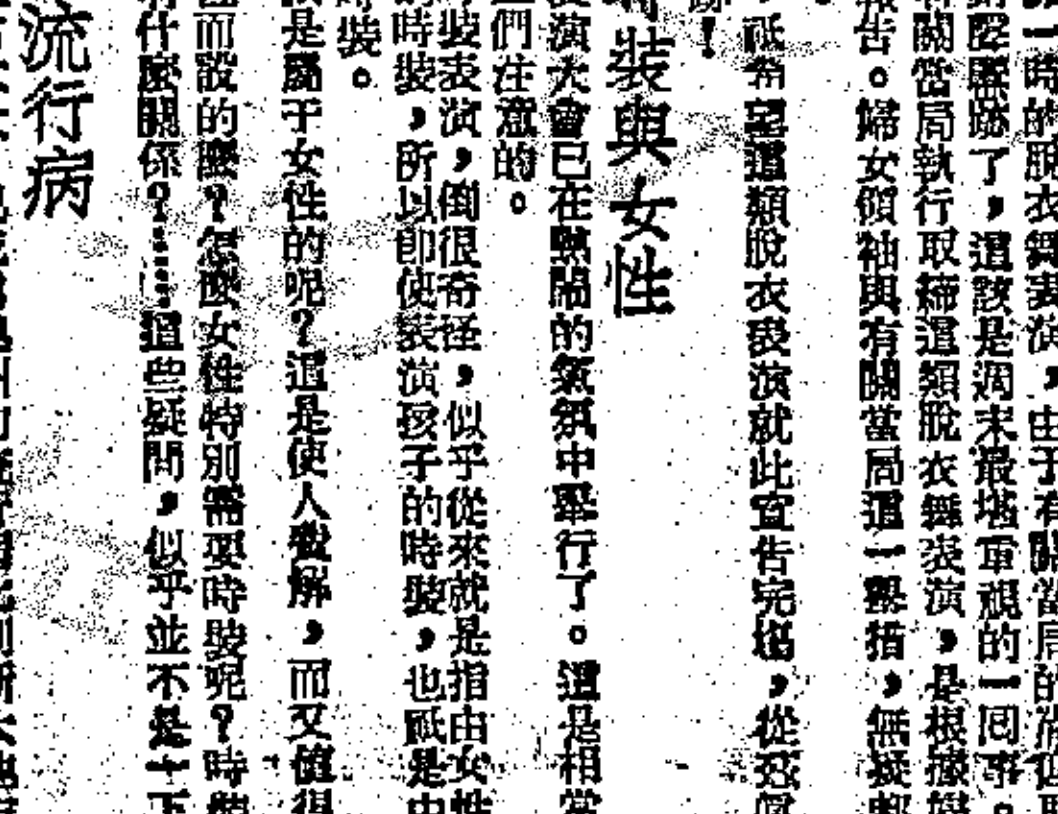 一時的脫衣舞表演，由于有關當局的
銷聲匿跡了，這該是週末最堪重視的一回事。
有關當局執行取締這類脫衣舞表演，是根據婦
報告。婦女領袖與有關當局這一舉措，無疑
，祇希望這類脫衣表演就此宣告完場，從
跡！
時裝與女性
表演大會已在熱鬧的氣氛中舉行了。這是相當
們注意的。
時裝表演，倒很奇怪，似乎從來就是指由女性
的時裝，所以即使裝演孩子的時裝，也祇是由
時裝。
是屬于女性的呢？這是使人費解，而又值得
而設的麼？怎麼女性特別需要時裝呢？時裝
有什麼關係？……這些疑問，似乎並不是一下
流行病